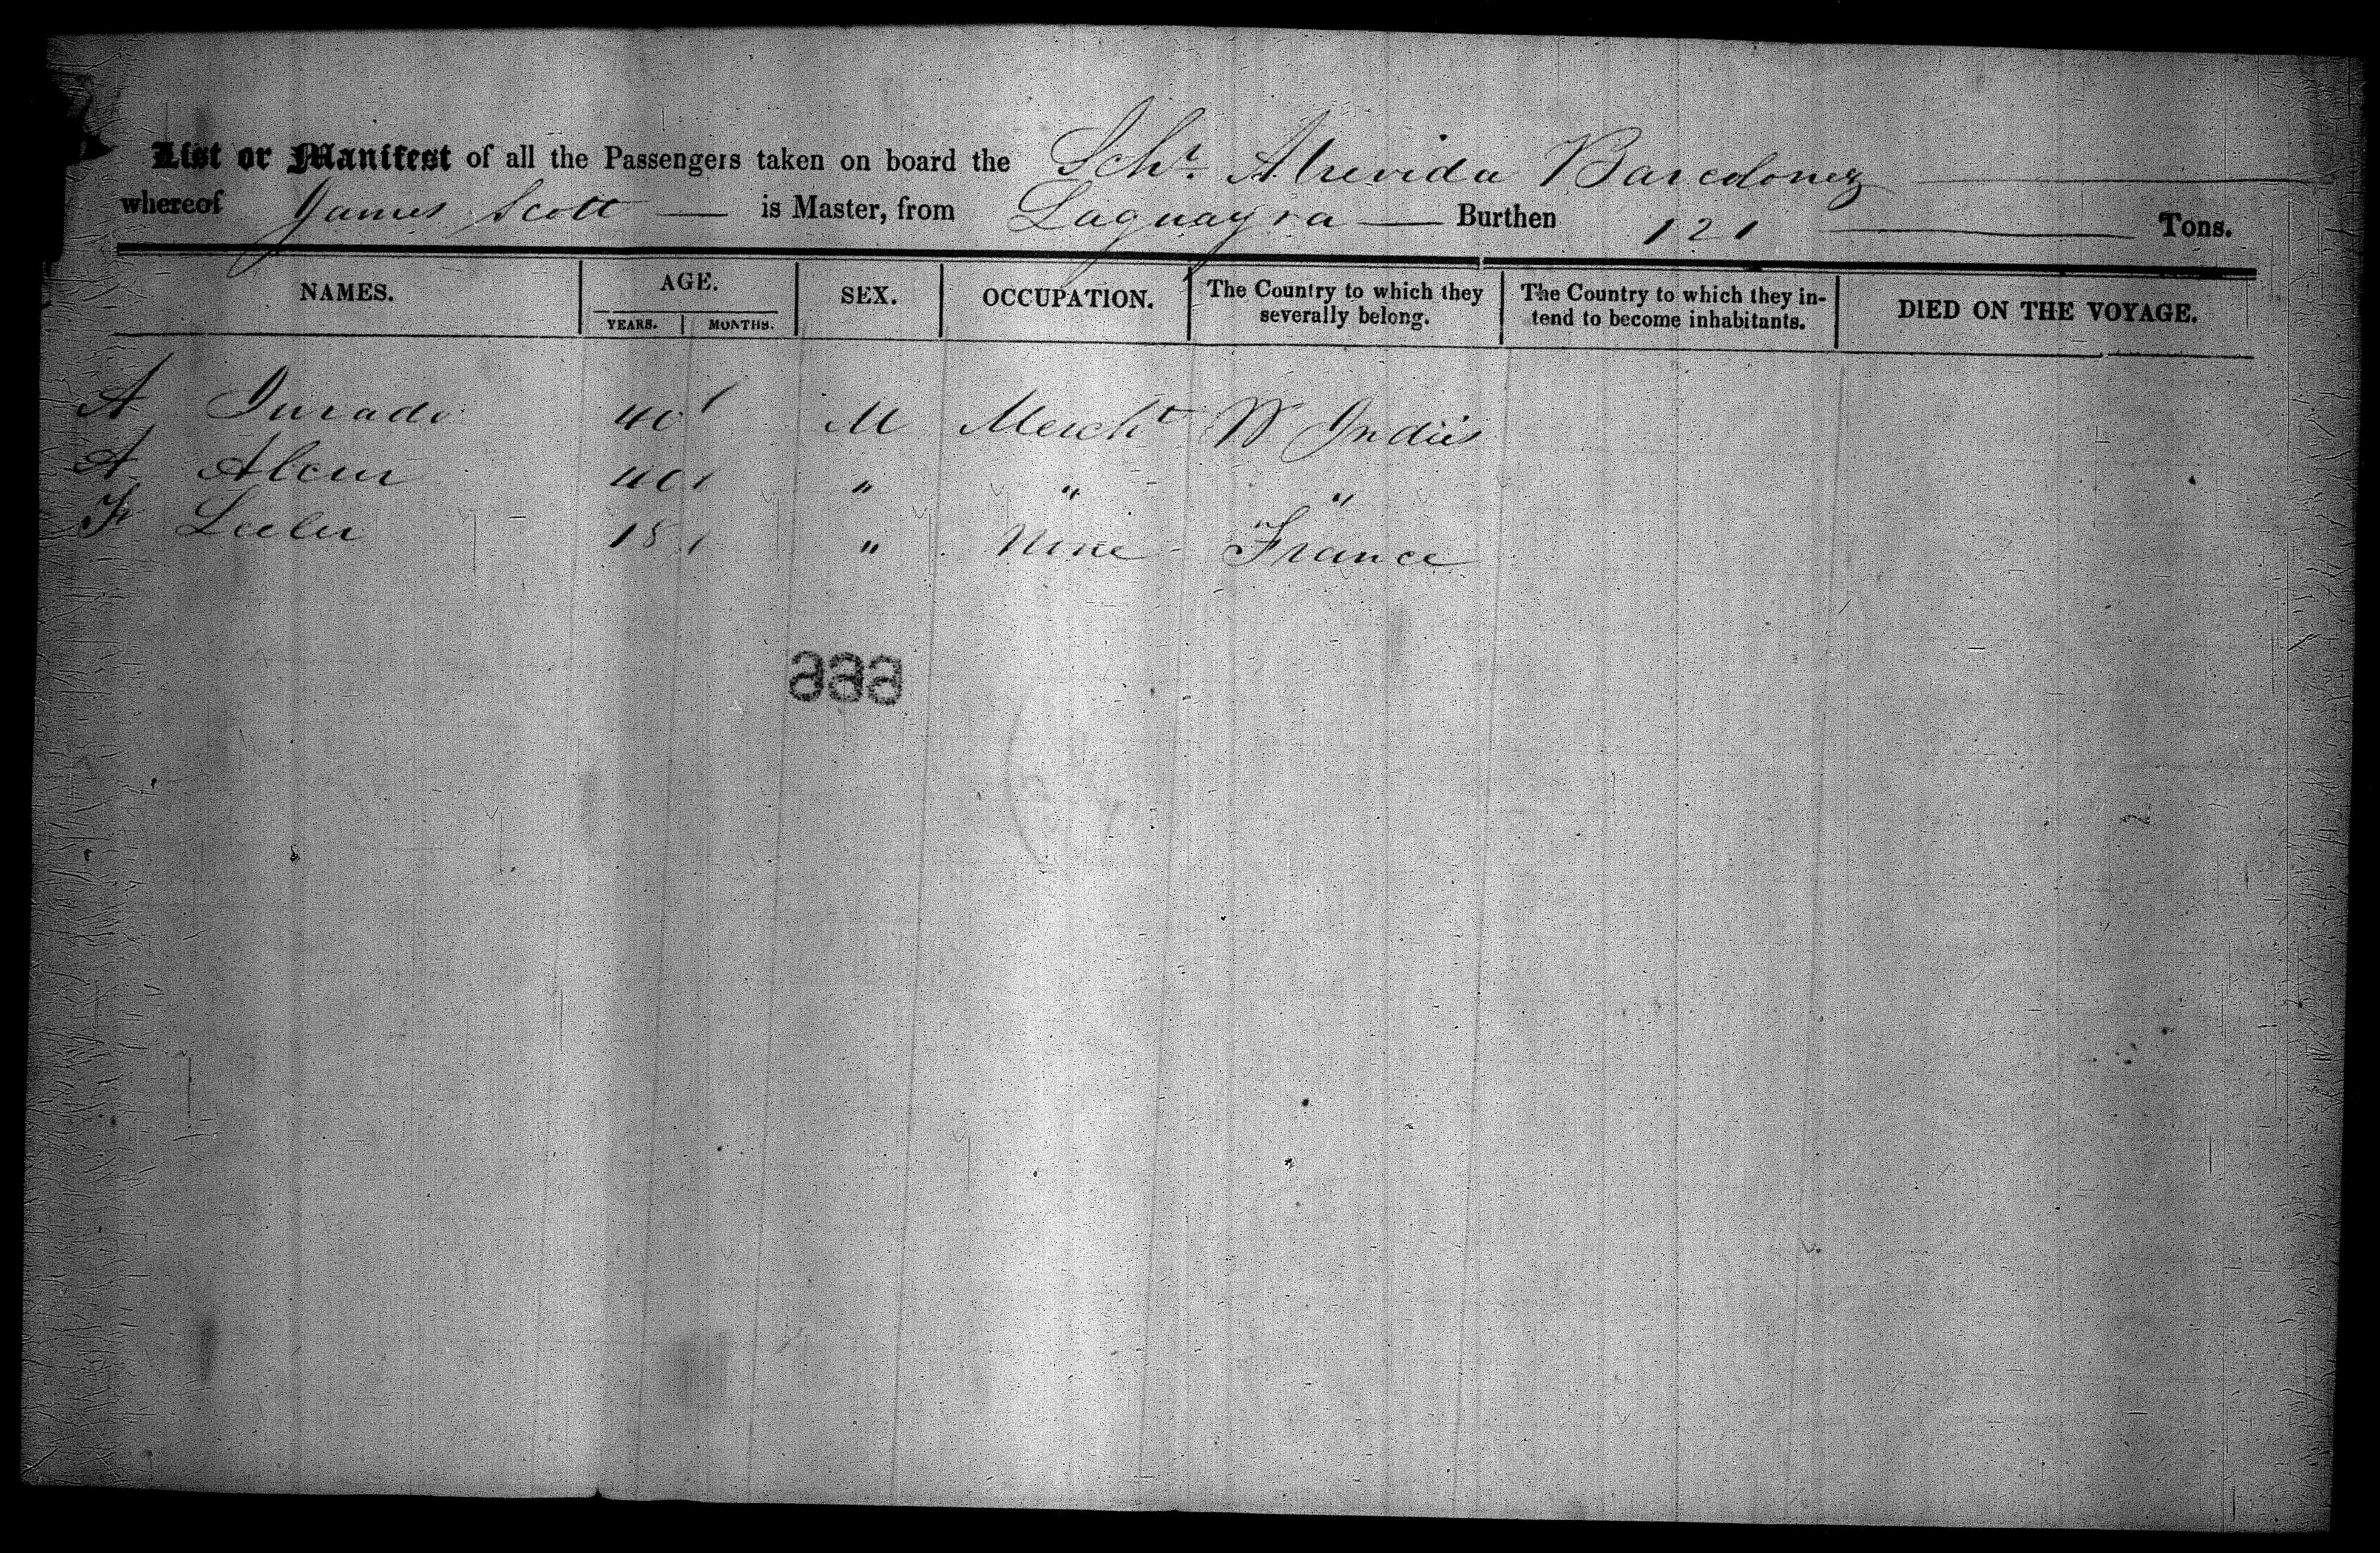 List or Manifest of all the Passengers taken on board the Schr. Atrevida Barcelonez
whereof James Scott is Master, from Laguayra Burthen 121 Tons.
NAMES. AGE. SEX. OCCUPATION. The Country to which they severally belong. The Country to which they intend to become inhabitants. DIED ON THE VOYAGE.
YEARS. MONTHS.
A Jurado 40 M Mercht W Indies
A 40 " " "
F 18 " None France